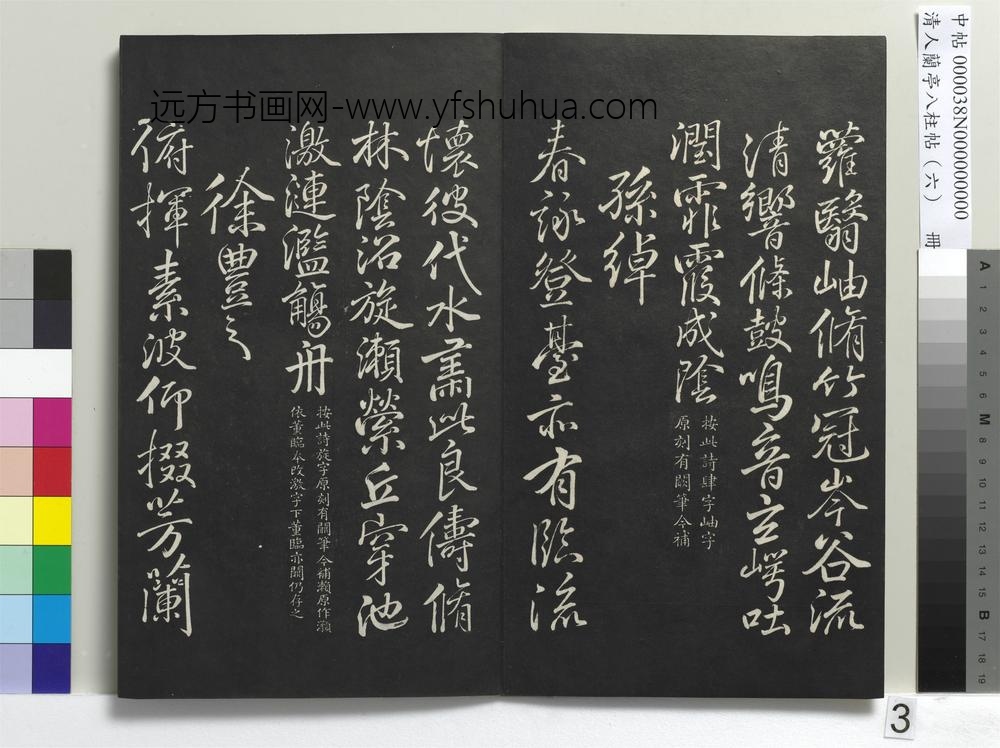 蘿翳岫脩竹冠岑谷流
清響條鼓鳴音玄崿吐
潤霏霧成陰
按此詩肆字岫字
原刻有闕筆今補
孫綽
春詠登臺亦有臨流
懷彼伐木肅此良儔脩
林陰沼旋瀨縈丘穿池
激漣濫觴舟
按此詩旋字原刻有闕筆今補瀨原作瀬
依董臨本改激字下董臨亦闕仍存之
徐豐之
俯揮素波仰掇芳蘭
远方书画网-www.yfshuhua.com
中帖 000038N000000000
清人蘭亭八柱帖(六) 冊
3
A 1 2 3 4 5 6 M 8 9 10 11 12 13 14 15 B 17 18 19